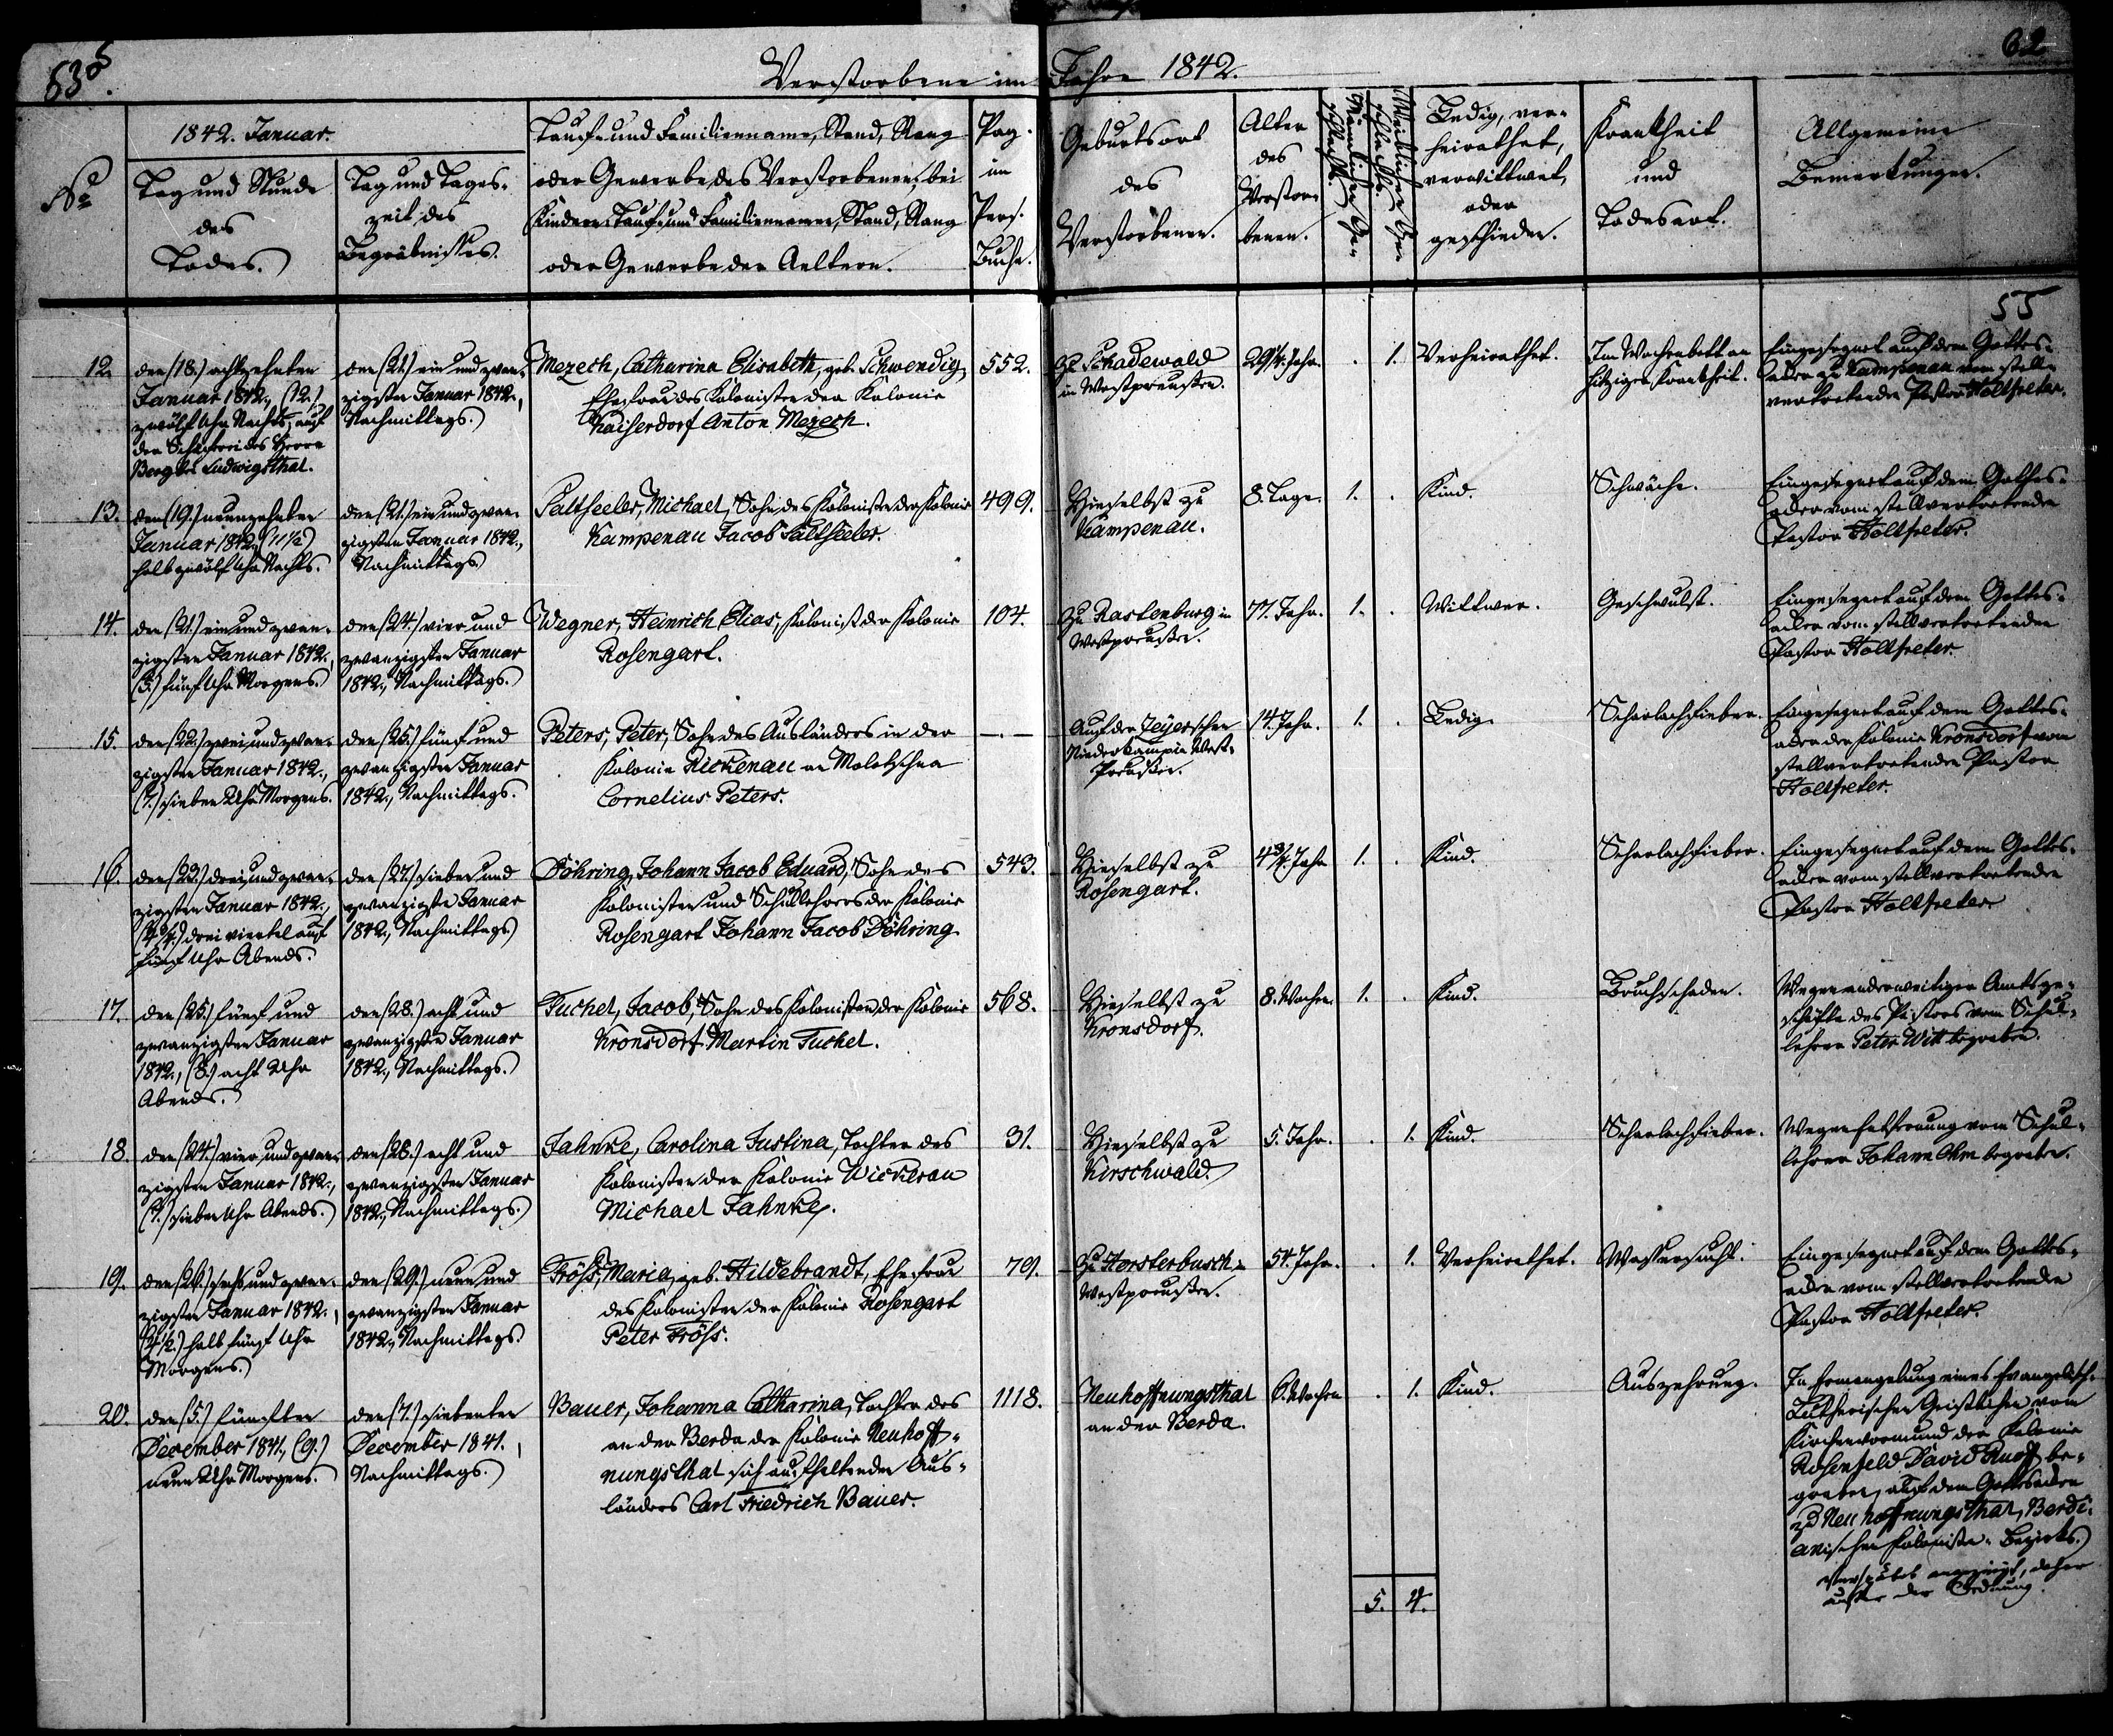 635.
62
Verstorbene im Jahre 1842.
No
1842. Januar.
Tag und Stunde
des
Todes.
Tag und Tages-
zeit des
Begräbnisses.
Tauf- und Familienname, Stand, Rang
oder Gewerbe des Verstorbenen, bei
Kindern Tauf- und Familiennamen, Stand, Rang
oder Gewerbe der Aeltern.
Pag.
im
Pers.
Buche.
Geburtsort
des
Verstorbenen.
Alter
des
Verstor-
benen.
Männlichen Ge-
schlechts.
Weiblichen Ge-
schlechts.
Ledig, ver-
heirathet,
verwittwet,
oder
geschieden.
Krankheit
und
Todesart.
Allgemeine
Bemerkungen.
55
12.
den (18.) achtzehnten
Januar 1842, (12.)
zwölf Uhr Nachts, auf
der Schäferei des Herrn
Berg bei Ludwigsthal.
den (21.) ein und zwan-
zigsten Januar 1842,
Nachmittags.
Mezech, Catharina Elisabeth, geb. Schwendig,
Ehefrau des Kolonisten der Kolonie
Kaiserdorf Anton Mezech.
552.
Zu Schadewald
in Westpreußen.
29 1/4 Jahr.
. 1.
Verheirathet.
Im Wochenbett an
hitziger Krankheit.
Eingesegnet auf dem Gottes-
acker zu Kampenau vom stell-
vertretenden Pastor Holtfreter.
13.
den (19.) neunzehnten
Januar 1842, (11 1/2)
halb zwölf Uhr Nachts.
den (21.) ein und zwan-
zigsten Januar 1842,
Nachmittags
Saltseeler, Michael, Sohn des Kolonisten der Kolonie
Kampenau Jacob Saltseeler.
499.
Hieselbst zu
Kampenau.
8. Tage.
1. .
Kind.
Schwäche.
Eingesegnet auf dem Gottes-
acker vom stellvertretenden
Pastor Holtfreter.
14.
den (21.) ein und zwan-
zigsten Januar 1842,
(5.) fünf Uhr Morgens.
den (24.) vier und
zwanzigsten Januar
1842, Nachmittags.
Wegner, Heinrich Elias, Kolonist der Kolonie
Rosengart.
104.
Zu Rastenburg in
Westpreußen.
77. Jahr.
1. .
Wittwer.
Geschwulst.
Eingesegnet auf dem Gottes-
acker vom stellvertretenden
Pastor Holtfreter.
15.
den (22.) zwei und zwan-
zigsten Januar 1842,
(7.) sieben Uhr Morgens.
den (25.) fünf und
zwanzigsten Januar
1842, Nachmittags.
Peters, Peter, Sohn des Ausländers in der
Kolonie Rickenau an Molotschna
Cornelius Peters.
—.—
Auf der Zeyerschen
Niederkampe in West-
Preußen.
14. Jahr.
1. .
Ledig.
Scharlachfieber.
Eingesegnet auf dem Gottes-
acker der Kolonie Kronsdorf vom
stellvertretenden Pastor
Holtfreter.
16.
den (23.) drei und zwan-
zigsten Januar 1842,
(4 3/4) drei viertel auf
fünf Uhr Abends.
den (27.) sieben und
zwanzigsten Januar
1842, Nachmittags
Döhring, Johann Jacob Eduard, Sohn des
Kolonisten und Schullehrers der Kolonie
Rosengart Johann Jacob Döhring
543.
Hieselbst zu
Rosengart.
4 3/4 Jahr
1. .
Kind.
Scharlachfieber.
Eingesegnet auf dem Gottes-
acker vom stellvertretenden
Pastor Holtfreter
17.
den (25.) fünf und
zwanzigsten Januar
1842, (8.) acht Uhr
Abends.
den (28.) acht und
zwanzigsten Januar
1842, Nachmittags.
Tuchel, Jacob, Sohn des Kolonisten der Kolonie
Kronsdorf Martin Tuchel.
568.
Hieselbst zu
Kronsdorf.
8. Wochen.
1. .
Kind.
Bruchschaden.
Wegen anderweitiger Amtsge-
schäfte des Pastors vom Schul-
lehrer Peter Witt begraben.
18.
den (24.) vier und zwan-
zigsten Januar 1842,
(7.) sieben Uhr Abends.
den (28.) acht und
zwanzigsten Januar
1842, Nachmittags.
Jahnke, Carolina Justina, Tochter des
Kolonisten der Kolonie Wickerau
Michael Jahnke.
31.
Hieselbst zu
Kirschwald.
5. Jahr.
. 1.
Kind.
Scharlachfieber.
Wegen Entfernung vom Schul-
lehrer Johann Ohm begraben.
19.
den (26.) sechs und zwan-
zigsten Januar 1842,
(4 1/2.) halb fünf Uhr
Morgens.
den (29.) neun und
zwanzigsten Januar
1842, Nachmittags.
Fröss, Maria, geb. Hildebrandt, Ehefrau
des Kolonisten der Kolonie Rosengart
Peter Fröss.
79.
Zu Horsterbusch in
Westpreußen.
54. Jahr.
. 1.
Verheirathet.
Wassersucht.
Eingesegnet auf dem Gottes-
acker vom stellvertretenden
Pastor Holtfreter.
20.
den (5.) fünften
December 1841, (9.)
neun Uhr Morgens.
den (7.) siebenten
December 1841,
Nachmittags.
Bauer, Johanna Catharina, Tochter des
an der Berda der Kolonie Neuhoff-
nungsthal sich aufhaltenden Aus-
länders Carl Friedrich Bauer.
1118.
Neuhoffnungsthal
an der Berda.
6. Wochen
. 1.
Kind.
Auszehrung.
In Ermangelung eines Evangelisch-
Lutherischen Geistlichen vom
Kirchenvormund der Kolonie
Rosenfeld David Ruoff be-
graben, auf dem Gottesacker
zu Neuhoffnungsthal, Berdi-
anischen Kolonisten-Bezirks.
Verspätet angezeigt, daher
außer der Ordnung.
5. 4.